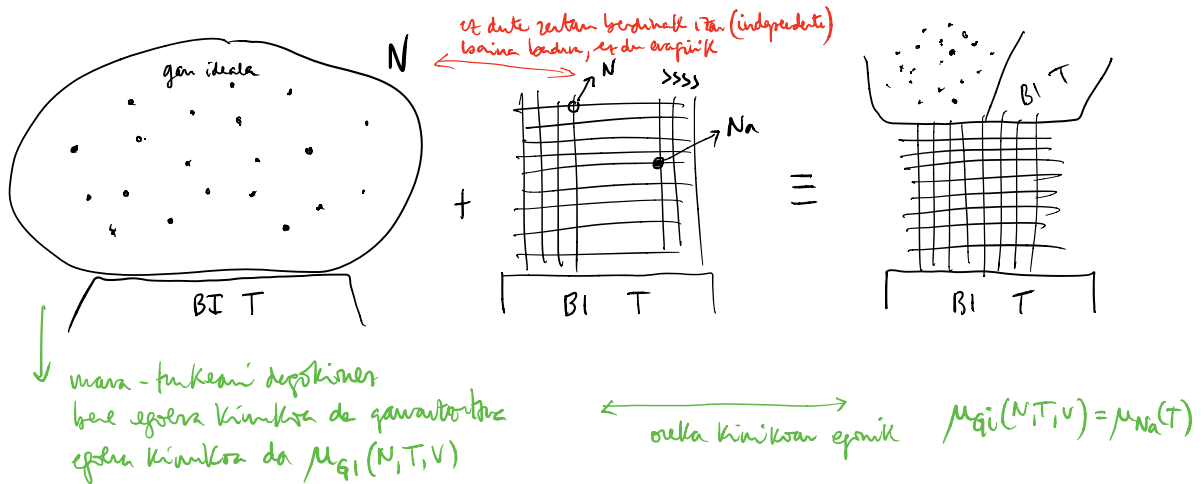 ez dute zertan berdinak izan (independente)
baina badira, ez du eraginik
gas ideala
N
N
>>>>
Na
+
≡
BI T
BI T
BI T
BI T
masa-trukeari dagokionez
bere egoera kimikoa da garrantzitsua
egoera kimikoa da μGI(N,T,V)
oreka kimikoan egonik
μGi(N,T,V) = μNa(T)